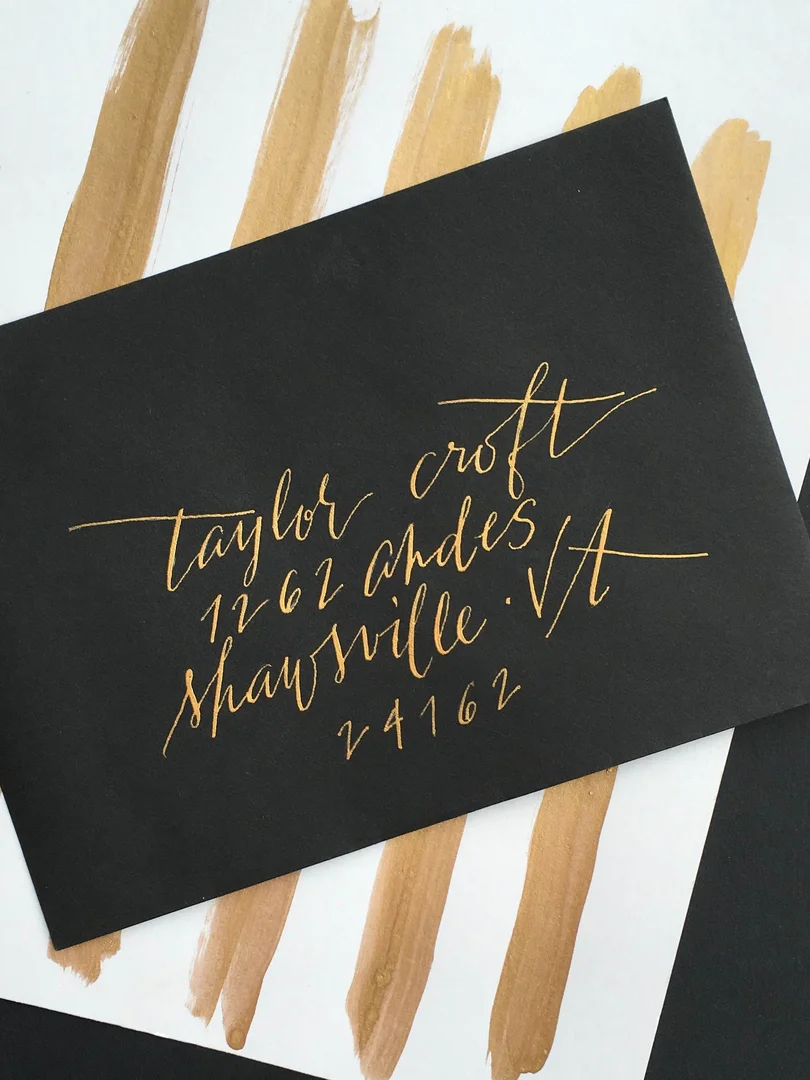 taylor croft
1262 andes
shawsville · Vt
24162